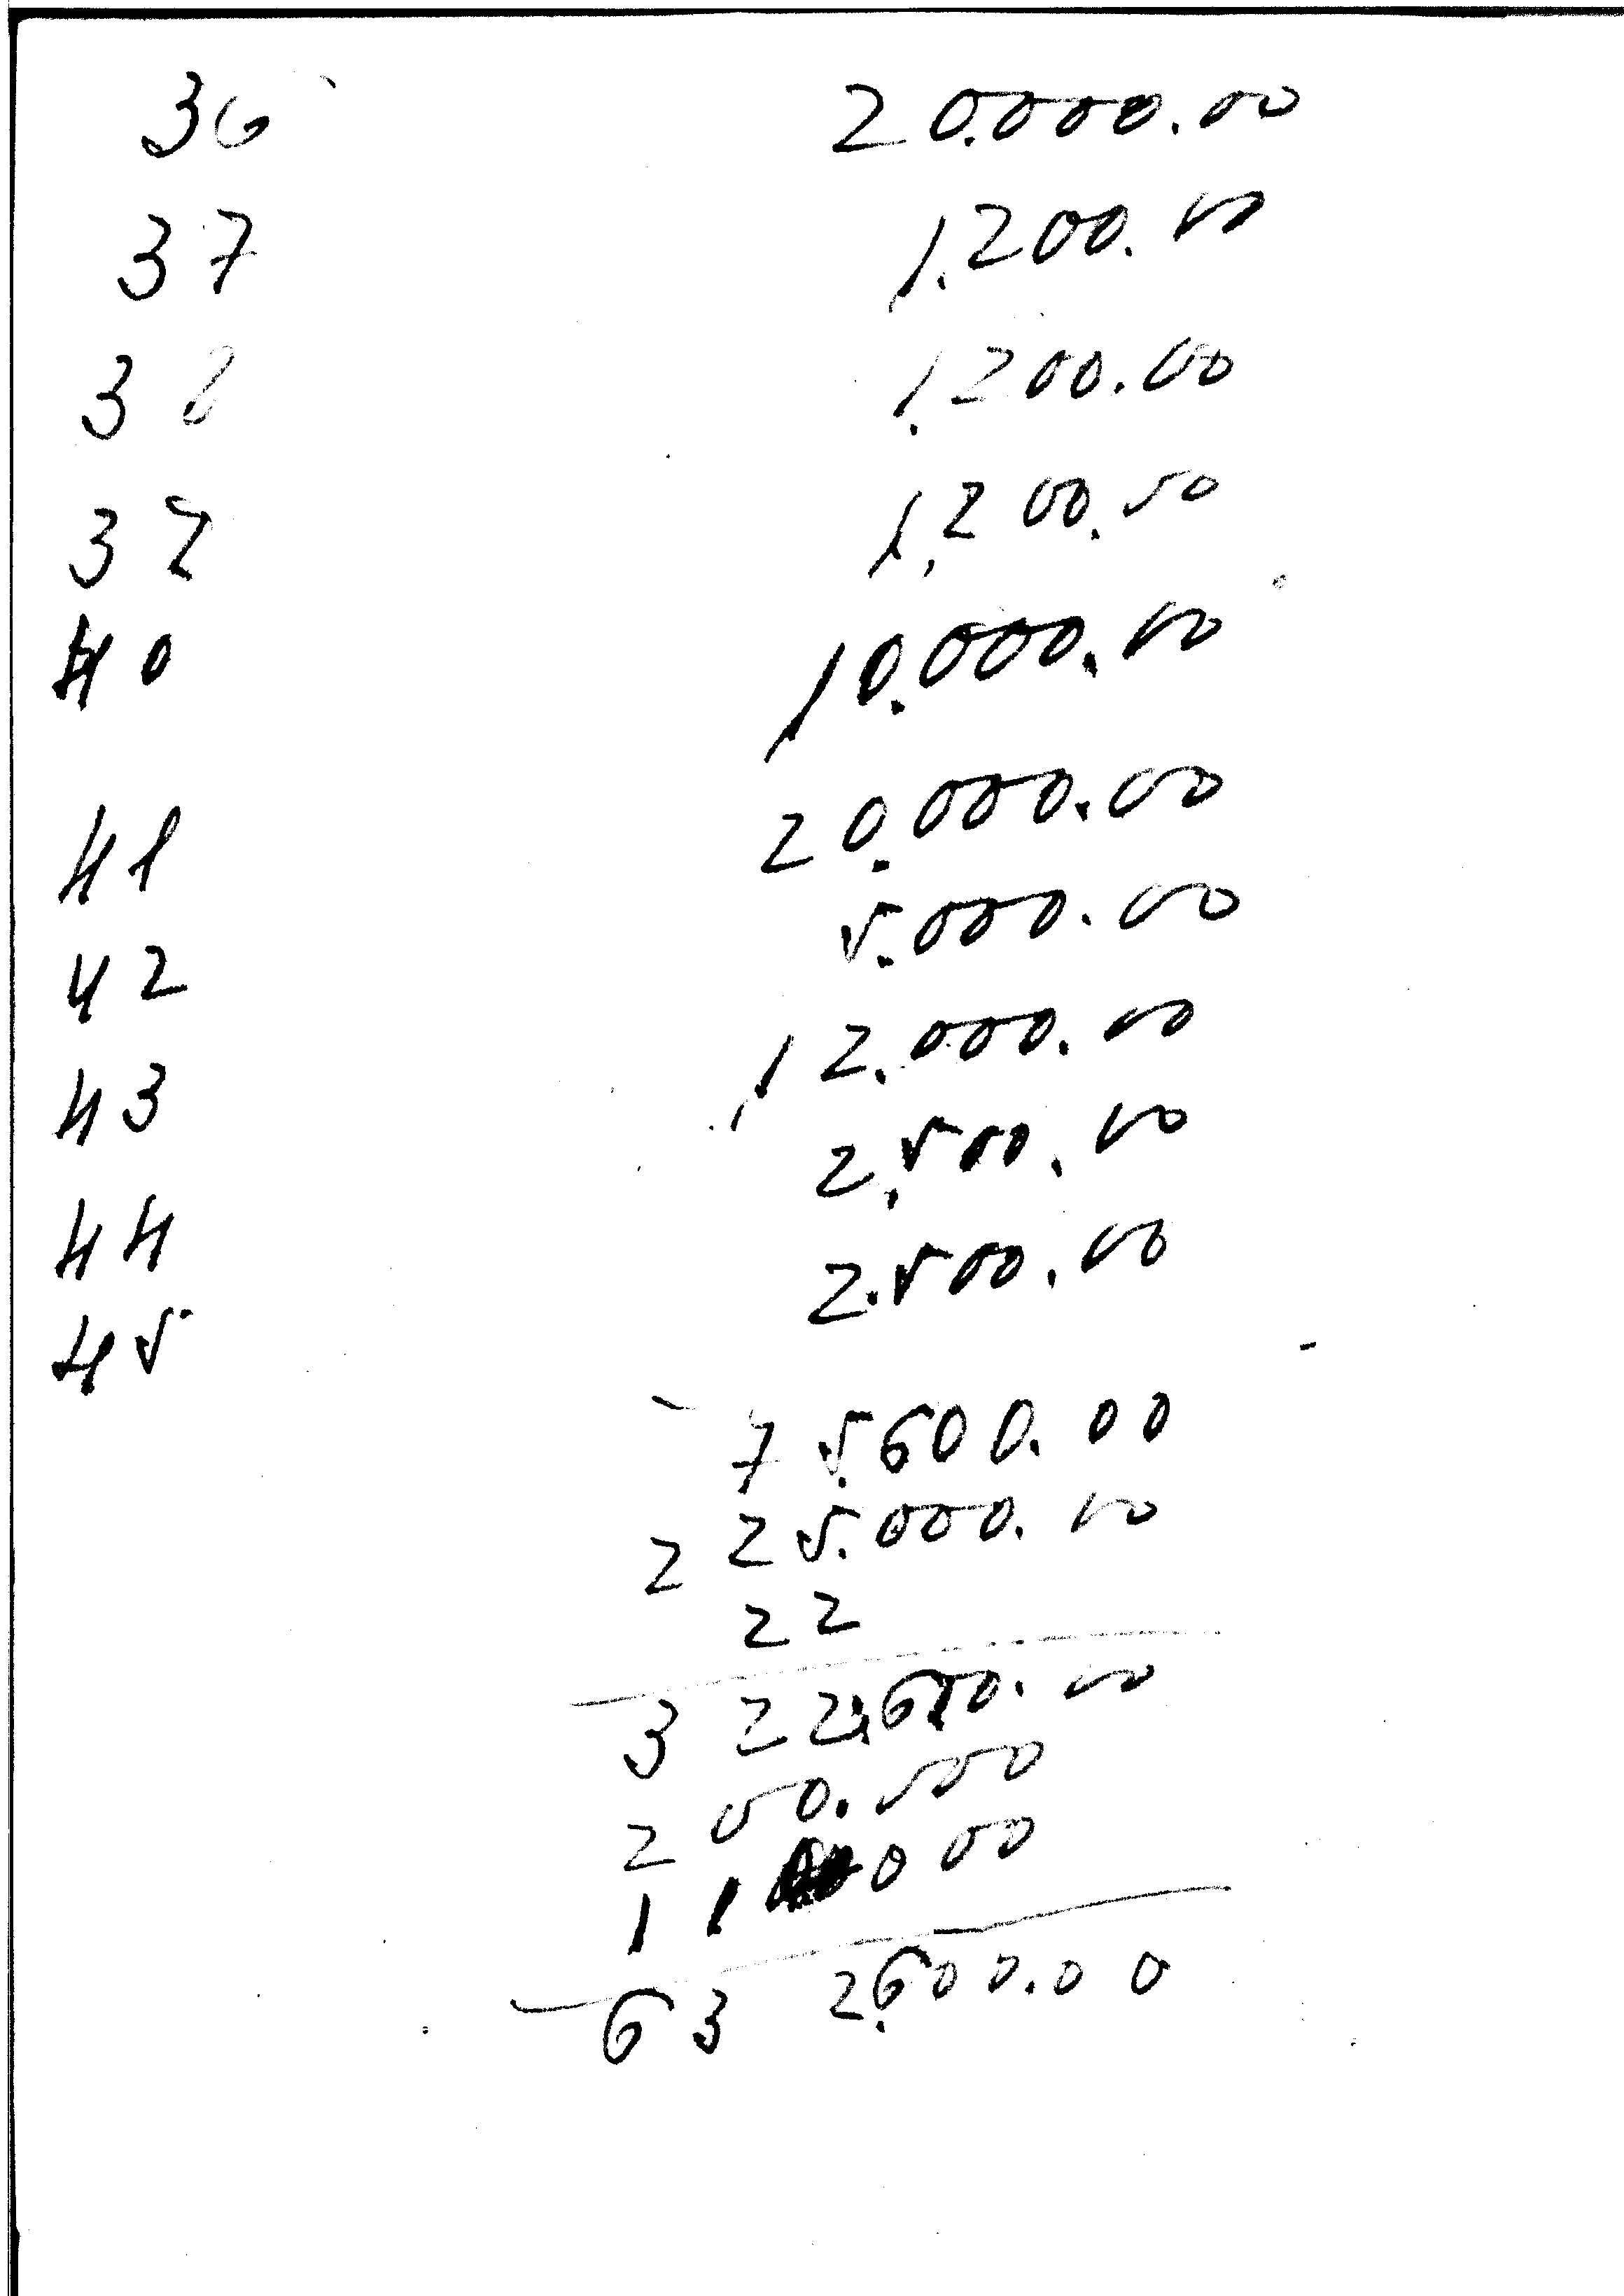 36 20.000.00
37 1.200.00
38 1.200.00
39 1.200.00
40 10.000.00
41 20.000.00
42 5.000.00
43 12.000.00
44 2.500.00
45 2.500.00
75.600.00
225.000.00
22
322.600.00
200.000
11 000
632.600.00